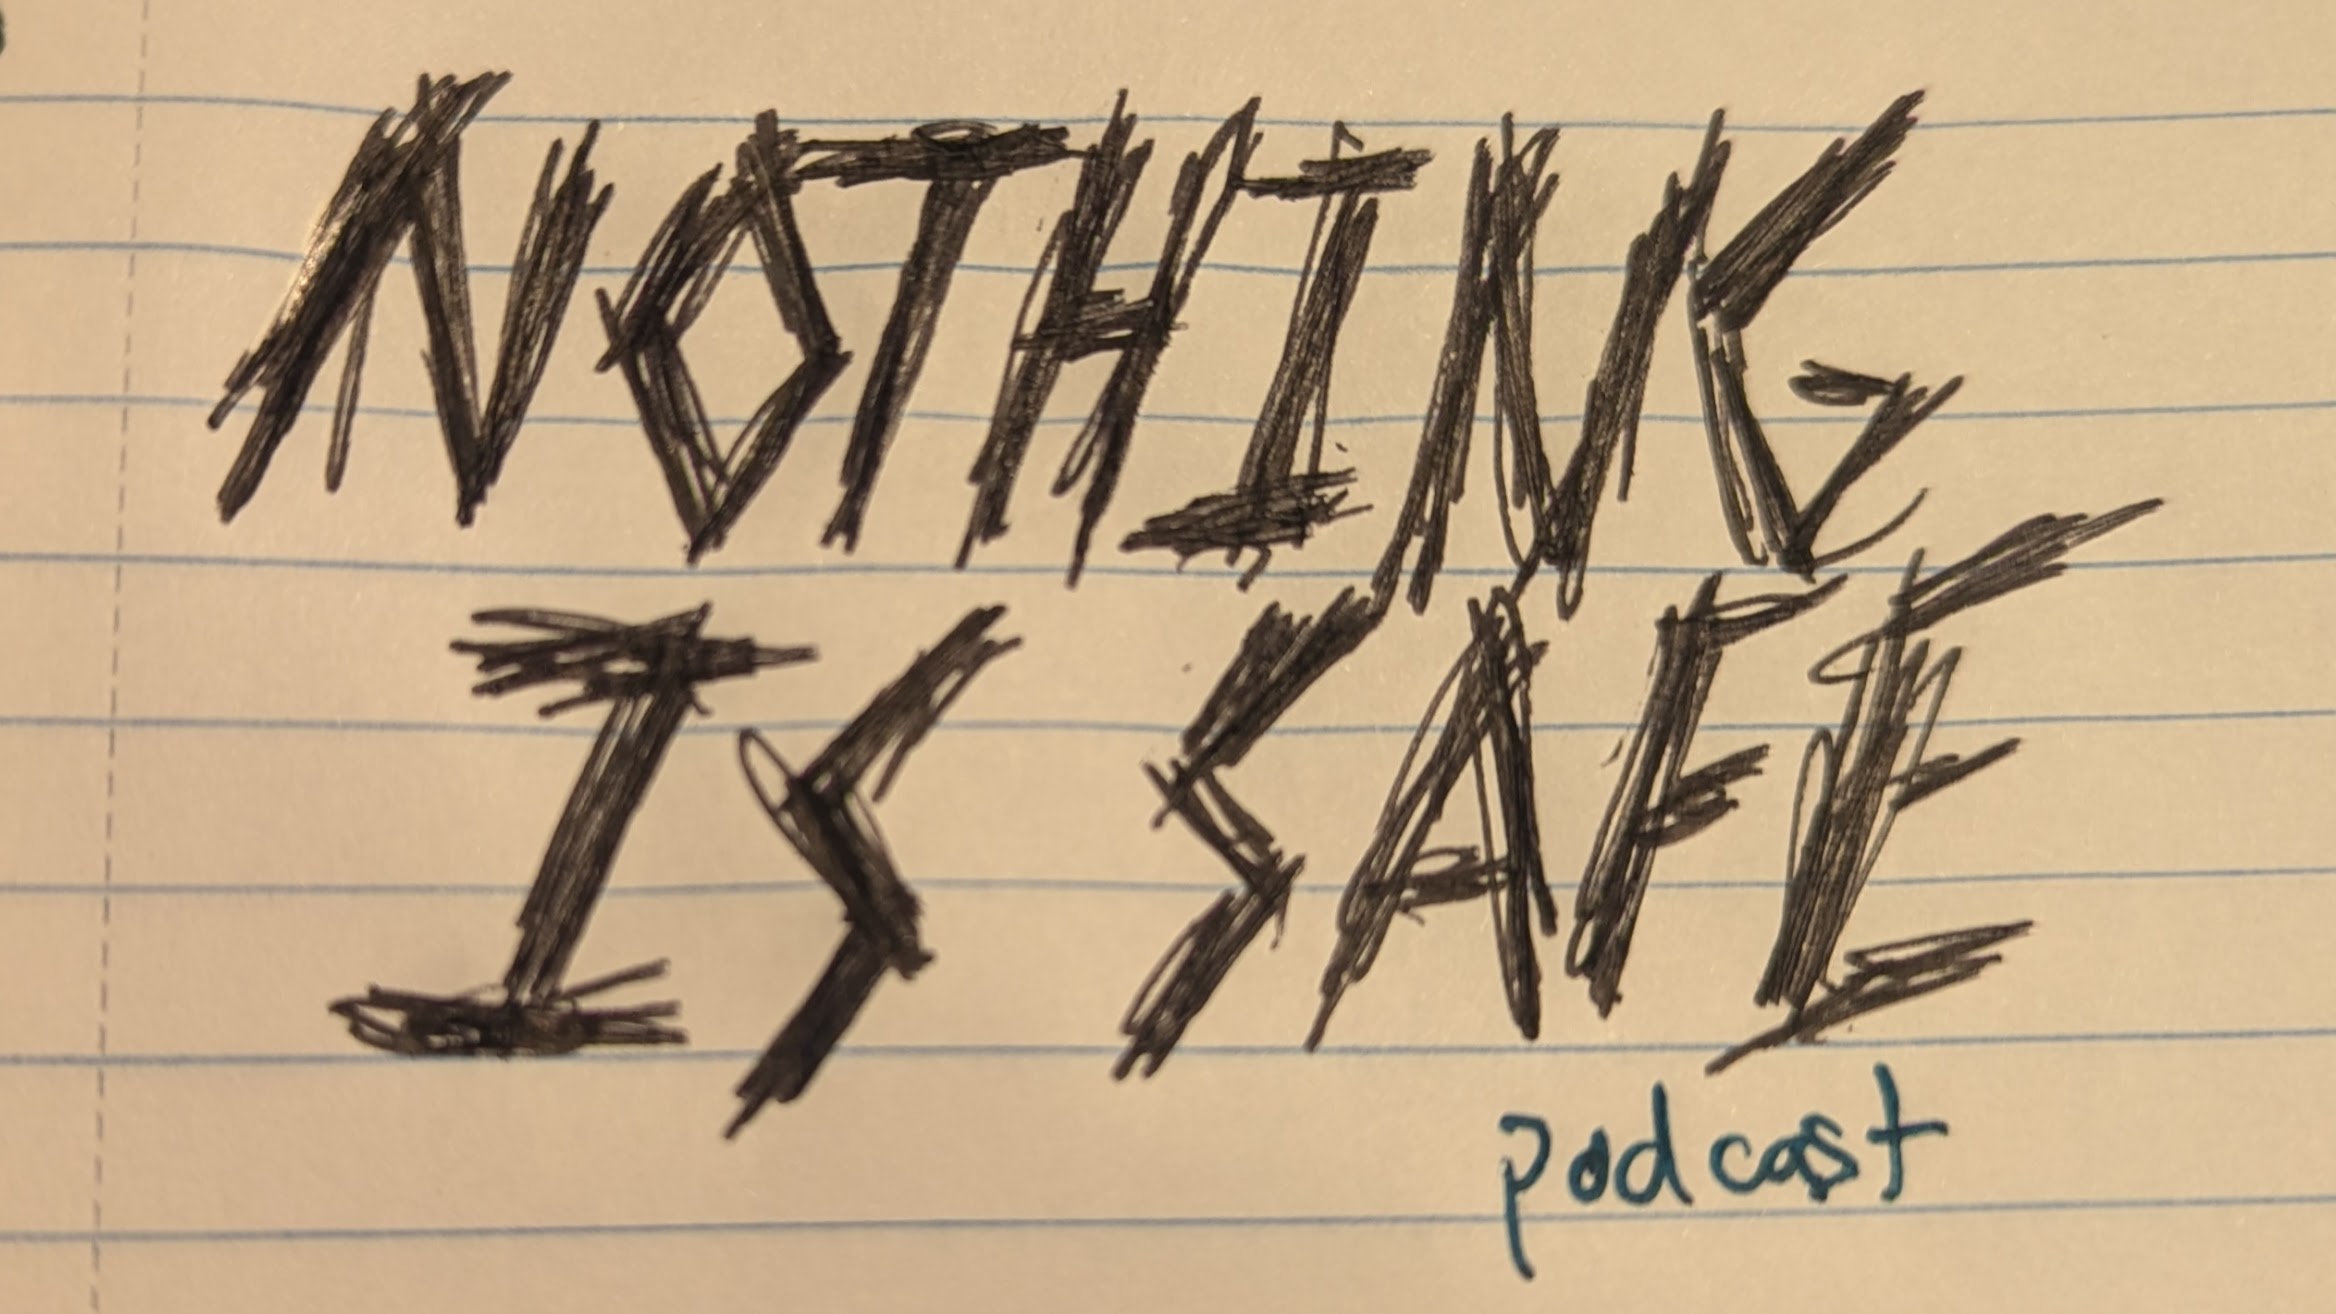 NOTHING
IS SAFE
podcast